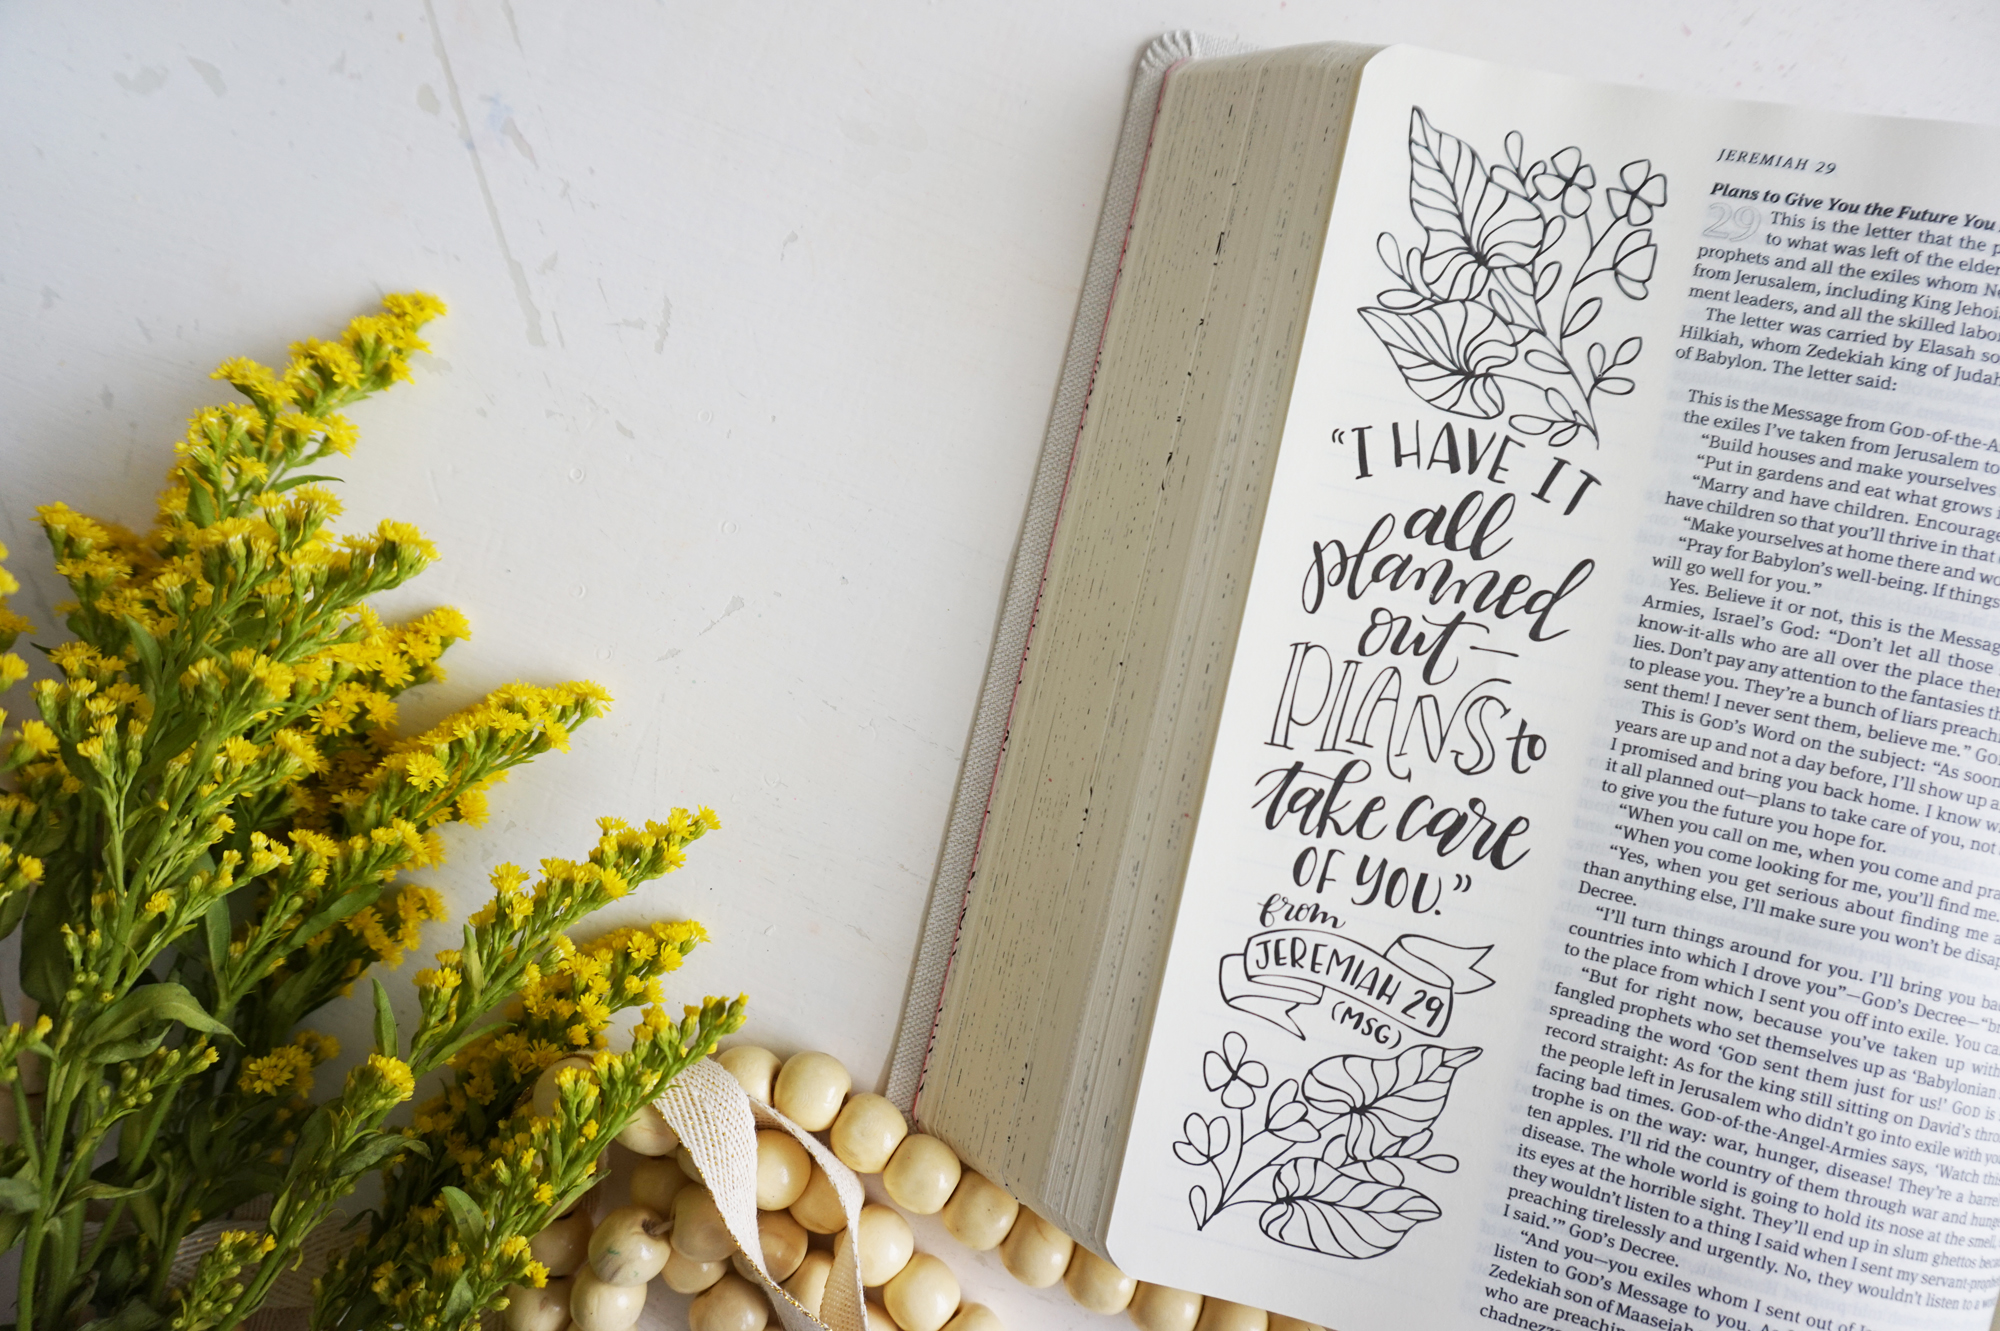 “I HAVE IT
all
planned
out—
PLANS to
take care
OF YOU.”
from
JEREMIAH 29
(MSG)
JEREMIAH 29
Plans to Give You the Future You
29 This is the letter that the
to what was left of the
prophets and all the exiles whom
from Jerusalem, including King
ment leaders, and all the skilled
The letter was carried by Elasah
Hilkiah, whom Zedekiah king of Judah
of Babylon. The letter said:
This is the Message from GOD-of-the-
the exiles I’ve taken from Jerusalem to
“Build houses and make yourselves
“Put in gardens and eat what grows
“Marry and have children. Encourage
have children so that you’ll thrive in that
“Make yourselves at home there and
“Pray for Babylon’s well-being. If things
will go well for you.”
Yes. Believe it or not, this is the Message
Armies, Israel’s God: “Don’t let all those
know-it-alls who are all over the place
lies. Don’t pay any attention to the fantasies
to please you. They’re a bunch of liars
sent them! I never sent them, believe me.”
This is GOD’s Word on the subject: “As soon
years are up and not a day before, I’ll show up
I promised and bring you back home. I know
it all planned out—plans to take care of you, not
to give you the future you hope for.
“When you call on me, when you come and
“When you come looking for me, you’ll find me.
“Yes, when you get serious about finding me
than anything else, I’ll make sure you won’t be
Decree.
“I’ll turn things around for you. I’ll bring you
countries into which I drove you”—GOD’s Decree—
to the place from which I sent you off into exile. You
“But for right now, because you’ve taken up with
fangled prophets who set themselves up as ‘Babylonian
spreading the word ‘GOD sent them just for us!’ GOD is
record straight: As for the king still sitting on David’s
the people left in Jerusalem who didn’t go into exile with you
facing bad times. GOD-of-the-Angel-Armies says, ‘Watch this
trophe is on the way: war, hunger, disease! They’re a barrel
ten apples. I’ll rid the country of them through war and
disease. The whole world is going to hold its nose at the smell,
its eyes at the horrible sight. They’ll end up in slum ghettos
they wouldn’t listen to a thing I said when I sent my
preaching tirelessly and urgently. No, they wouldn’t listen to
I said.’” GOD’s Decree.
“And you—you exiles whom I sent out of
listen to GOD’s Message to you.
Zedekiah son of Maaseiah
who are preaching